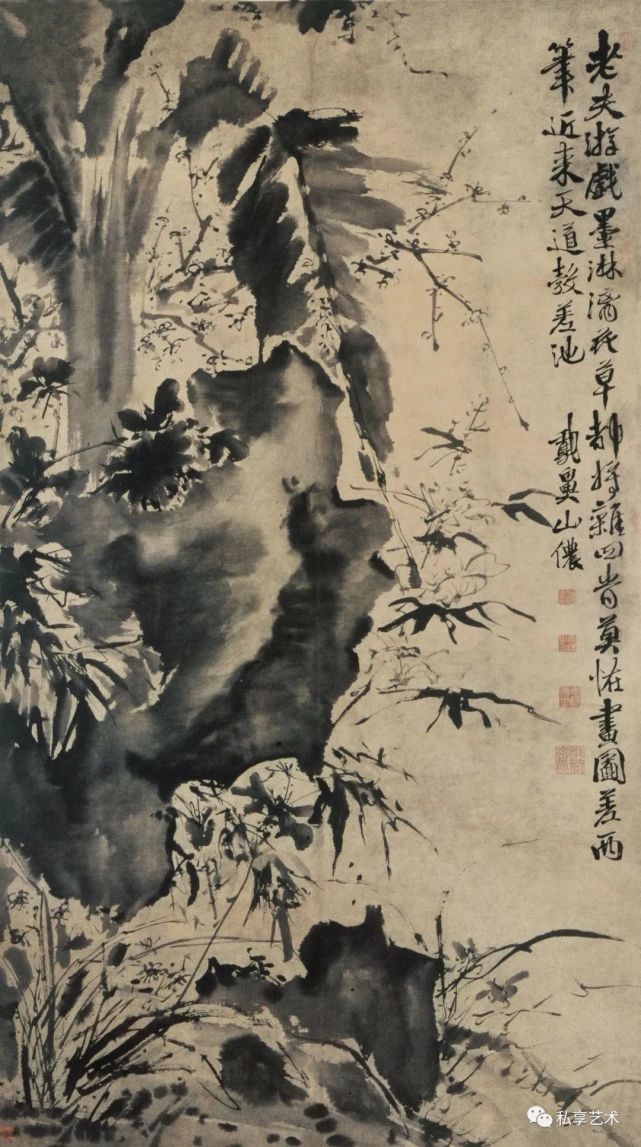 老夫游戲墨淋漓花草都將雜四旹莫恠畫圖差兩
筆近來天道彀差池 鵞鼻山儂
私享艺术